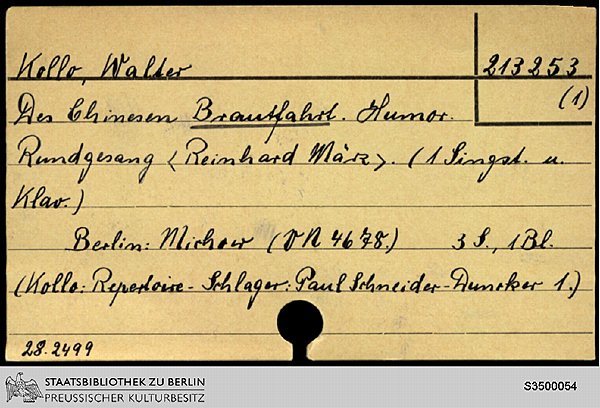 Kollo, Walter 213253
Des Chinesen Brautfahrt. Humor. (1)
Rundgesang <Reinhard März>. (1 Singst. u.
Klav.)
Berlin: Michow (VN 4678.) 3 S., 1 Bl.
(Kollo: Repertoire-Schlager: Paul Schneider-Duncker 1.)
28.2499
STAATSBIBLIOTHEK ZU BERLIN
PREUSSISCHER KULTURBESITZ
S3500054